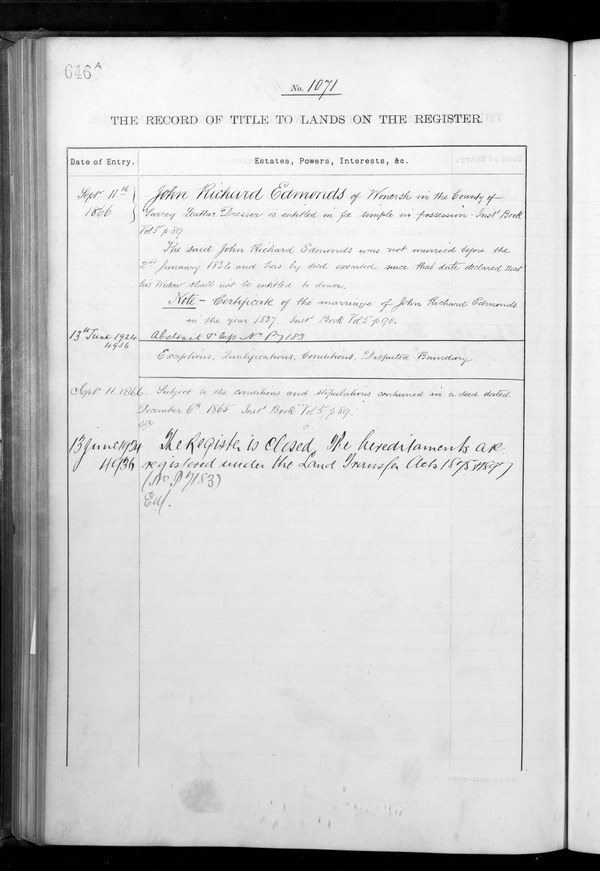 646A
No. 1071
THE RECORD OF TITLE TO LANDS ON THE REGISTER.
Date of Entry.
Estates, Powers, Interests, &c.
Septr 11th 1866
John Richard Edmonds of Wonersh in the County of
Surrey Leather Dresser is entitled in fee simple in possession - Inst Book
Vol 5 p 89
The said John Richard Edmonds was not married before the
2nd January 1834 and has by deed executed since that date declared that
his Widow shall not be entitled to dower.
Note - Certificate of the marriage of John Richard Edmonds
in the year 1837. Inst Book Vol 5 p 90.
13th June 1924
4936
Abstract &
No P 7183
Exceptions, Qualifications, Conditions, Disputed Boundary
Septr 11. 1866.
Subject to the conditions and stipulations contained in a deed dated
December 6th 1865 Inst Book Vol 5 p 89.
13 June 1924
4936
The Register is closed. The hereditaments are
registered under the Land Transfer Acts 1875 & 1897
(No. P 7183)